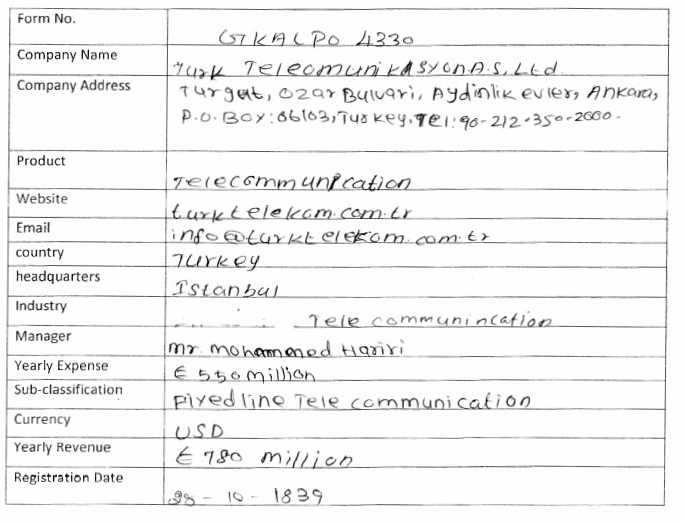 Form No. GKALPO 4330
Company Name Turk TelecomunikasyonA.S, Ltd.
Company Address Turgut, Ozar Bulvari, Aydinlik evler, Ankara,
P.O. Box: 06103, Turkey. Tel: 90-212-350-2000.
Product Telecommunication
Website turktelekom.com.tr
Email info@turktelekom.com.tr
country Turkey
headquarters Istanbul
Industry Tele communincation
Manager mr. mohammoned Hariri
Yearly Expense € 550 million
Sub-classification Fixed line Tele communication
Currency USD
Yearly Revenue € 780 million
Registration Date 28 - 10 - 1839